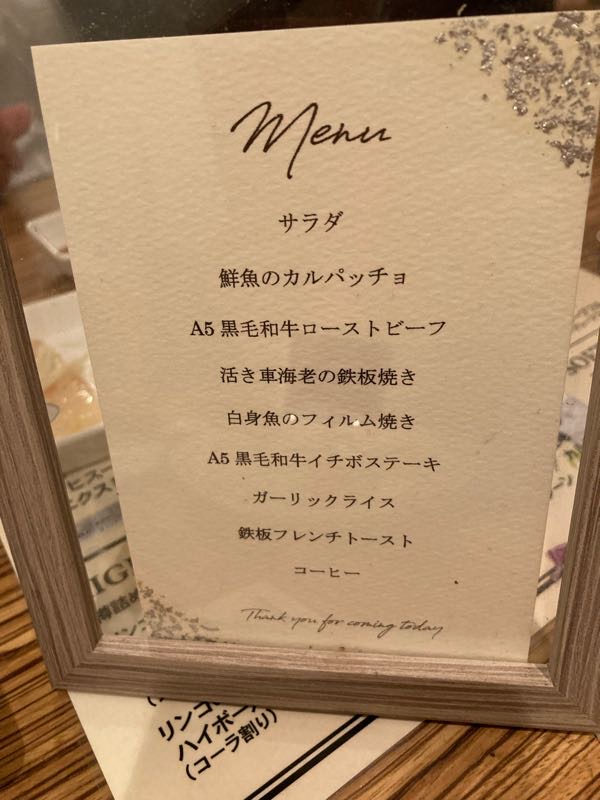 Menu
サラダ
鮮魚のカルパッチョ
A5 黒毛和牛ローストビーフ
活き車海老の鉄板焼き
白身魚のフィルム焼き
A5 黒毛和牛イチボステーキ
ガーリックライス
鉄板フレンチトースト
コーヒー
Thank you for coming today
リンゴ
ハイボー
(コーラ割り)